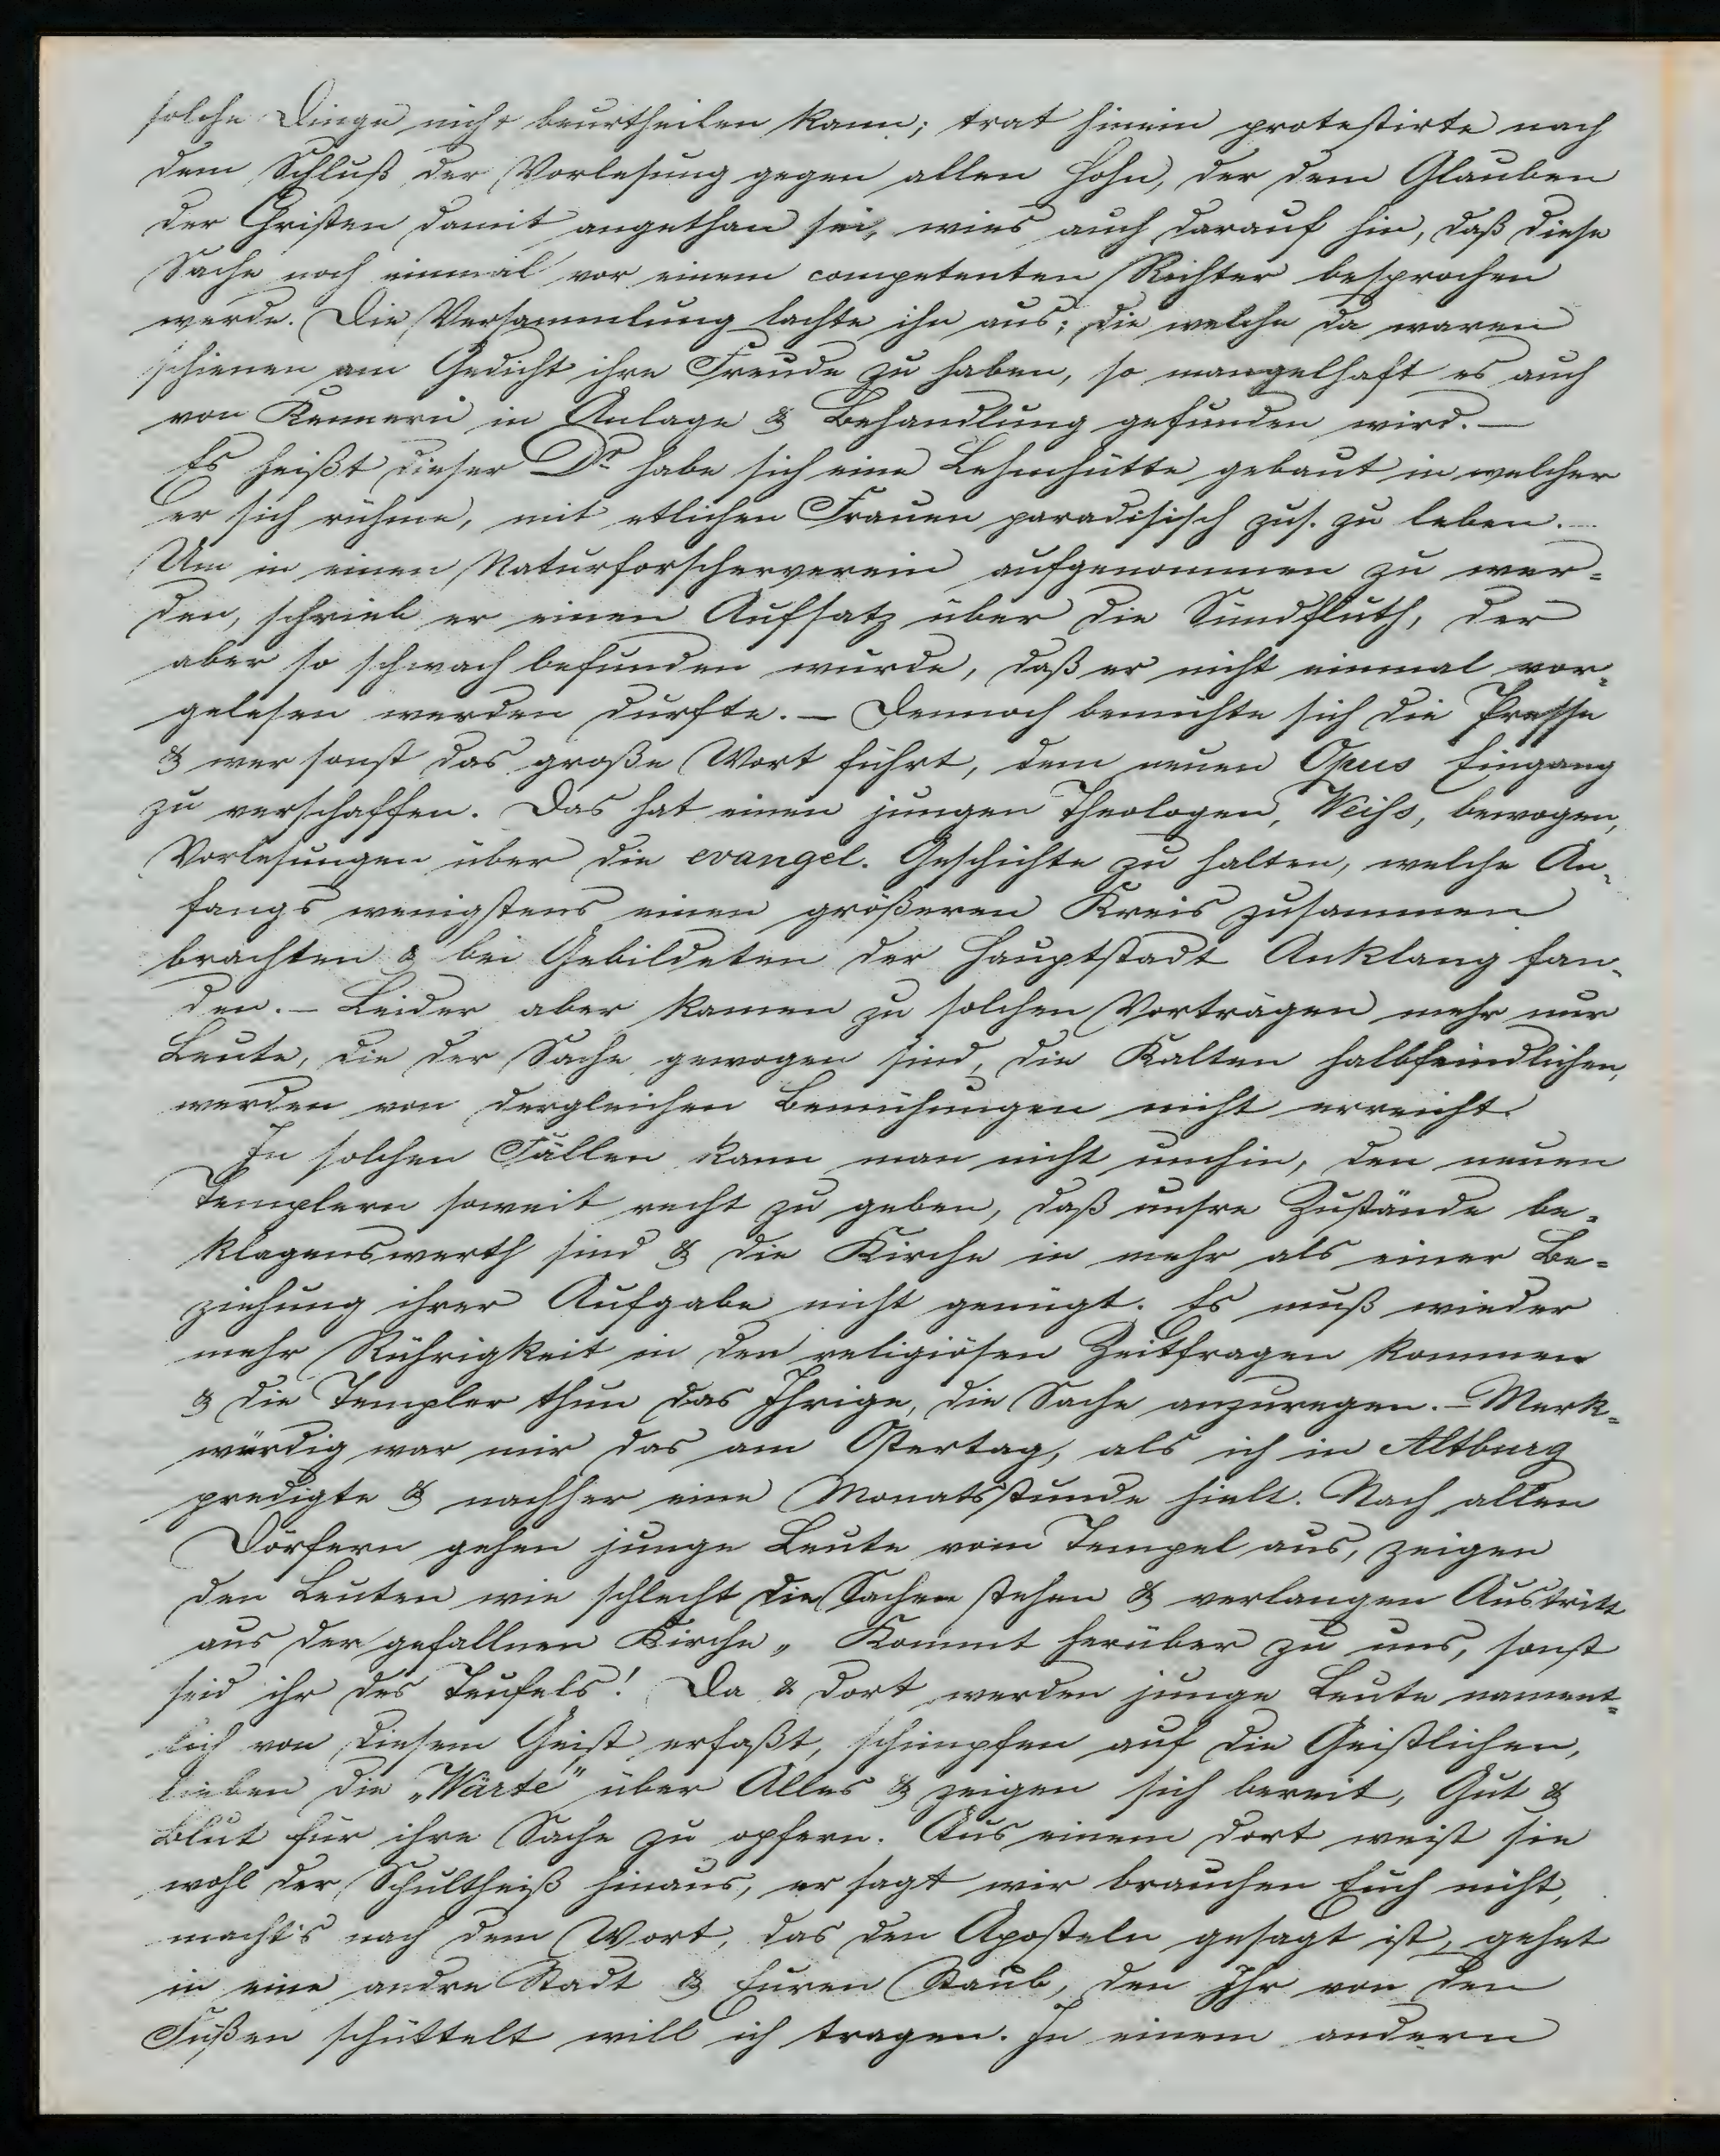 solche Dinge nicht beurtheilen kann; trat hinein protestirte nach
dem Schluß der Vorlesung gegen allen Hohn, der dem Glauben
der Christen damit angethan sei, wies auch darauf hin, daß diese
Sache noch einmal vor einem competenten Richter besprochen
werde. Die Versammlung lachte ihn aus; die welche da waren
schienen am Gedicht ihre Freude zu haben, so mangelhaft es auch
von Kennern in Anlage & Behandlung gefunden wird. —
Es heißt dieser Dr habe sich eine Lehmhütte gebaut in welcher
er sich rühme, mit etlichen Frauen paradisisch zus. zu leben. —
Um in einen Naturforscherverein aufgenommen zu wer=
den, schrieb er einen Aufsatz über die Sündfluth, der
aber so schwach befunden wurde, daß er nicht einmal vor=
gelesen werden durfte. — Dennoch bemühte sich die Presse
& wer sonst das große Wort führt, dem neuen Opus Eingang
zu verschaffen. Das hat einen jungen Theologen, Weiss, bewogen,
Vorlesungen über die evangel. Geschichte zu halten, welche An=
fangs wenigstens einen größeren Kreis zusammen
brachten & bei Gebildeten der Hauptstadt Anklang fan=
den. — Leider aber kamen zu solchen Vorträgen mehr nur
Leute, die der Sache gewogen sind, die Kalten halbfeindlichen,
werden von dergleichen Bemühungen nicht erreicht.
In solchen Fällen kann man nicht umhin, den neuen
Templern soweit recht zu geben, daß unsre Zustände be=
klagenswerth sind & die Kirche in mehr als einer Be=
ziehung ihrer Aufgabe nicht genügt. Es muß wieder
mehr Rührigkeit in den religiösen Zeitfragen kommen
& die Templer thun das Ihrige, die Sache anzuregen. — Merk=
würdig war mir das am Ostertag, als ich in Altburg
predigte & nachher eine Monatsstunde hielt. Nach allen
Dörfern gehen junge Leute vom Tempel aus, zeigen
den Leuten wie schlecht die Sachen stehen & verlangen Austritt
aus der gefallnen Kirche „ Kommt herüber zu uns, sonst
seid ihr des Teufels! Da & dort werden junge Leute nament=
lich von diesem Geist erfaßt, schimpfen auf die Geistlichen,
lieben die „Warte" über Alles & zeigen sich bereit, Gut &
Blut für ihre Sache zu opfern. Aus einem dort weist sie
wohl der Schultheiß hinaus, er sagt wir brauchen Euch nicht,
macht's nach dem Wort, das den Aposteln gesagt ist, gehet
in eine andre Stadt & Euren Staub, den Ihr von den
Füßen schüttelt will ich tragen. In einem andern